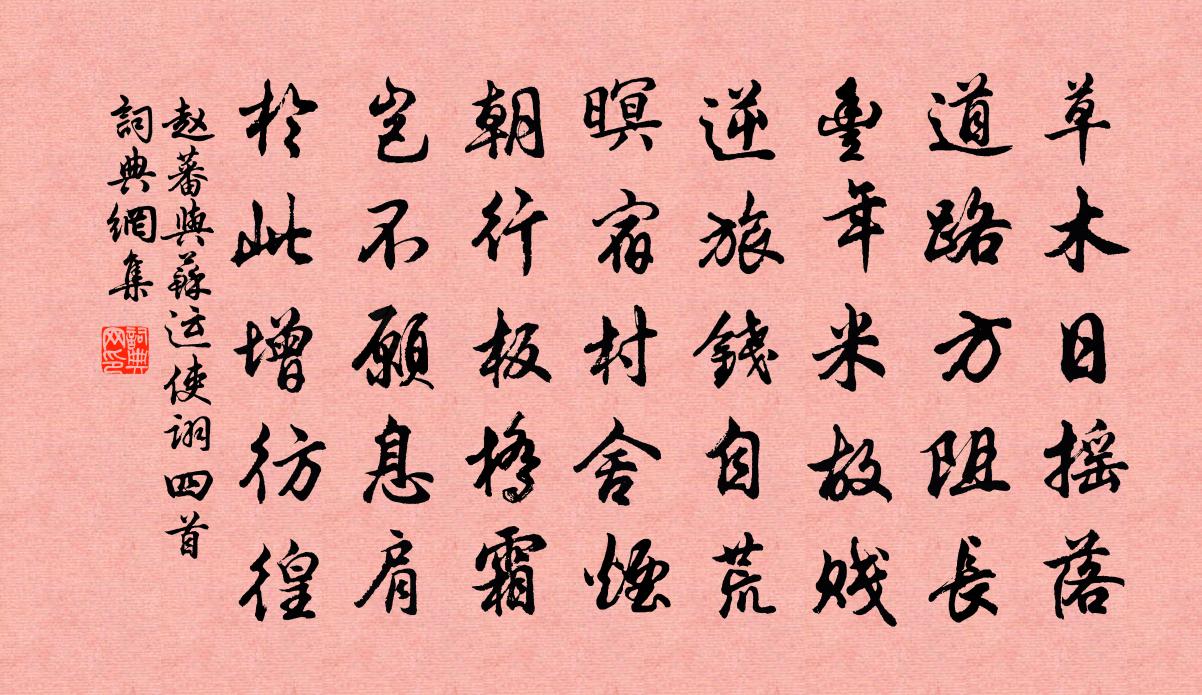 草木日摇落
道路方阻長
豊年米故贱
逆旅錢自荒
暝宿村舍煙
朝行板橋霜
岂不願息肩
於此增彷徨
赵蕃與蘇运使诩四首
詞典網集
詞典
网印